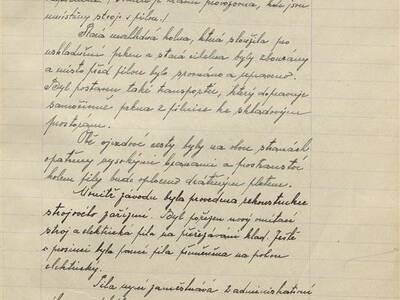 umístěny stroje i pilou.)
Stará maličká kolna, která sloužila po
uskladnění prken a stará cihelna byly zbourány
a místo před pilou bylo srovnáno a upraveno.
Byl postaven také transportér, který dopravuje
samočinně prkna z pilnice ke skladovým
prostorám.
Obě vjezdové cesty byly na obou stranách
opatřeny vysokými branami a prostranství
kolem pily bude oploceno drátěným pletem.
Uvnitř závodu byla provedena rekonstrukce
strojového zařízení. Byl pořízen nový omítací
stroj a elektrická pila na přeřezávání klád. Ještě
v prosinci byla parní pila přeměněna na pohon
elektrický.
Pila nyní zaměstnává 2 administrativní